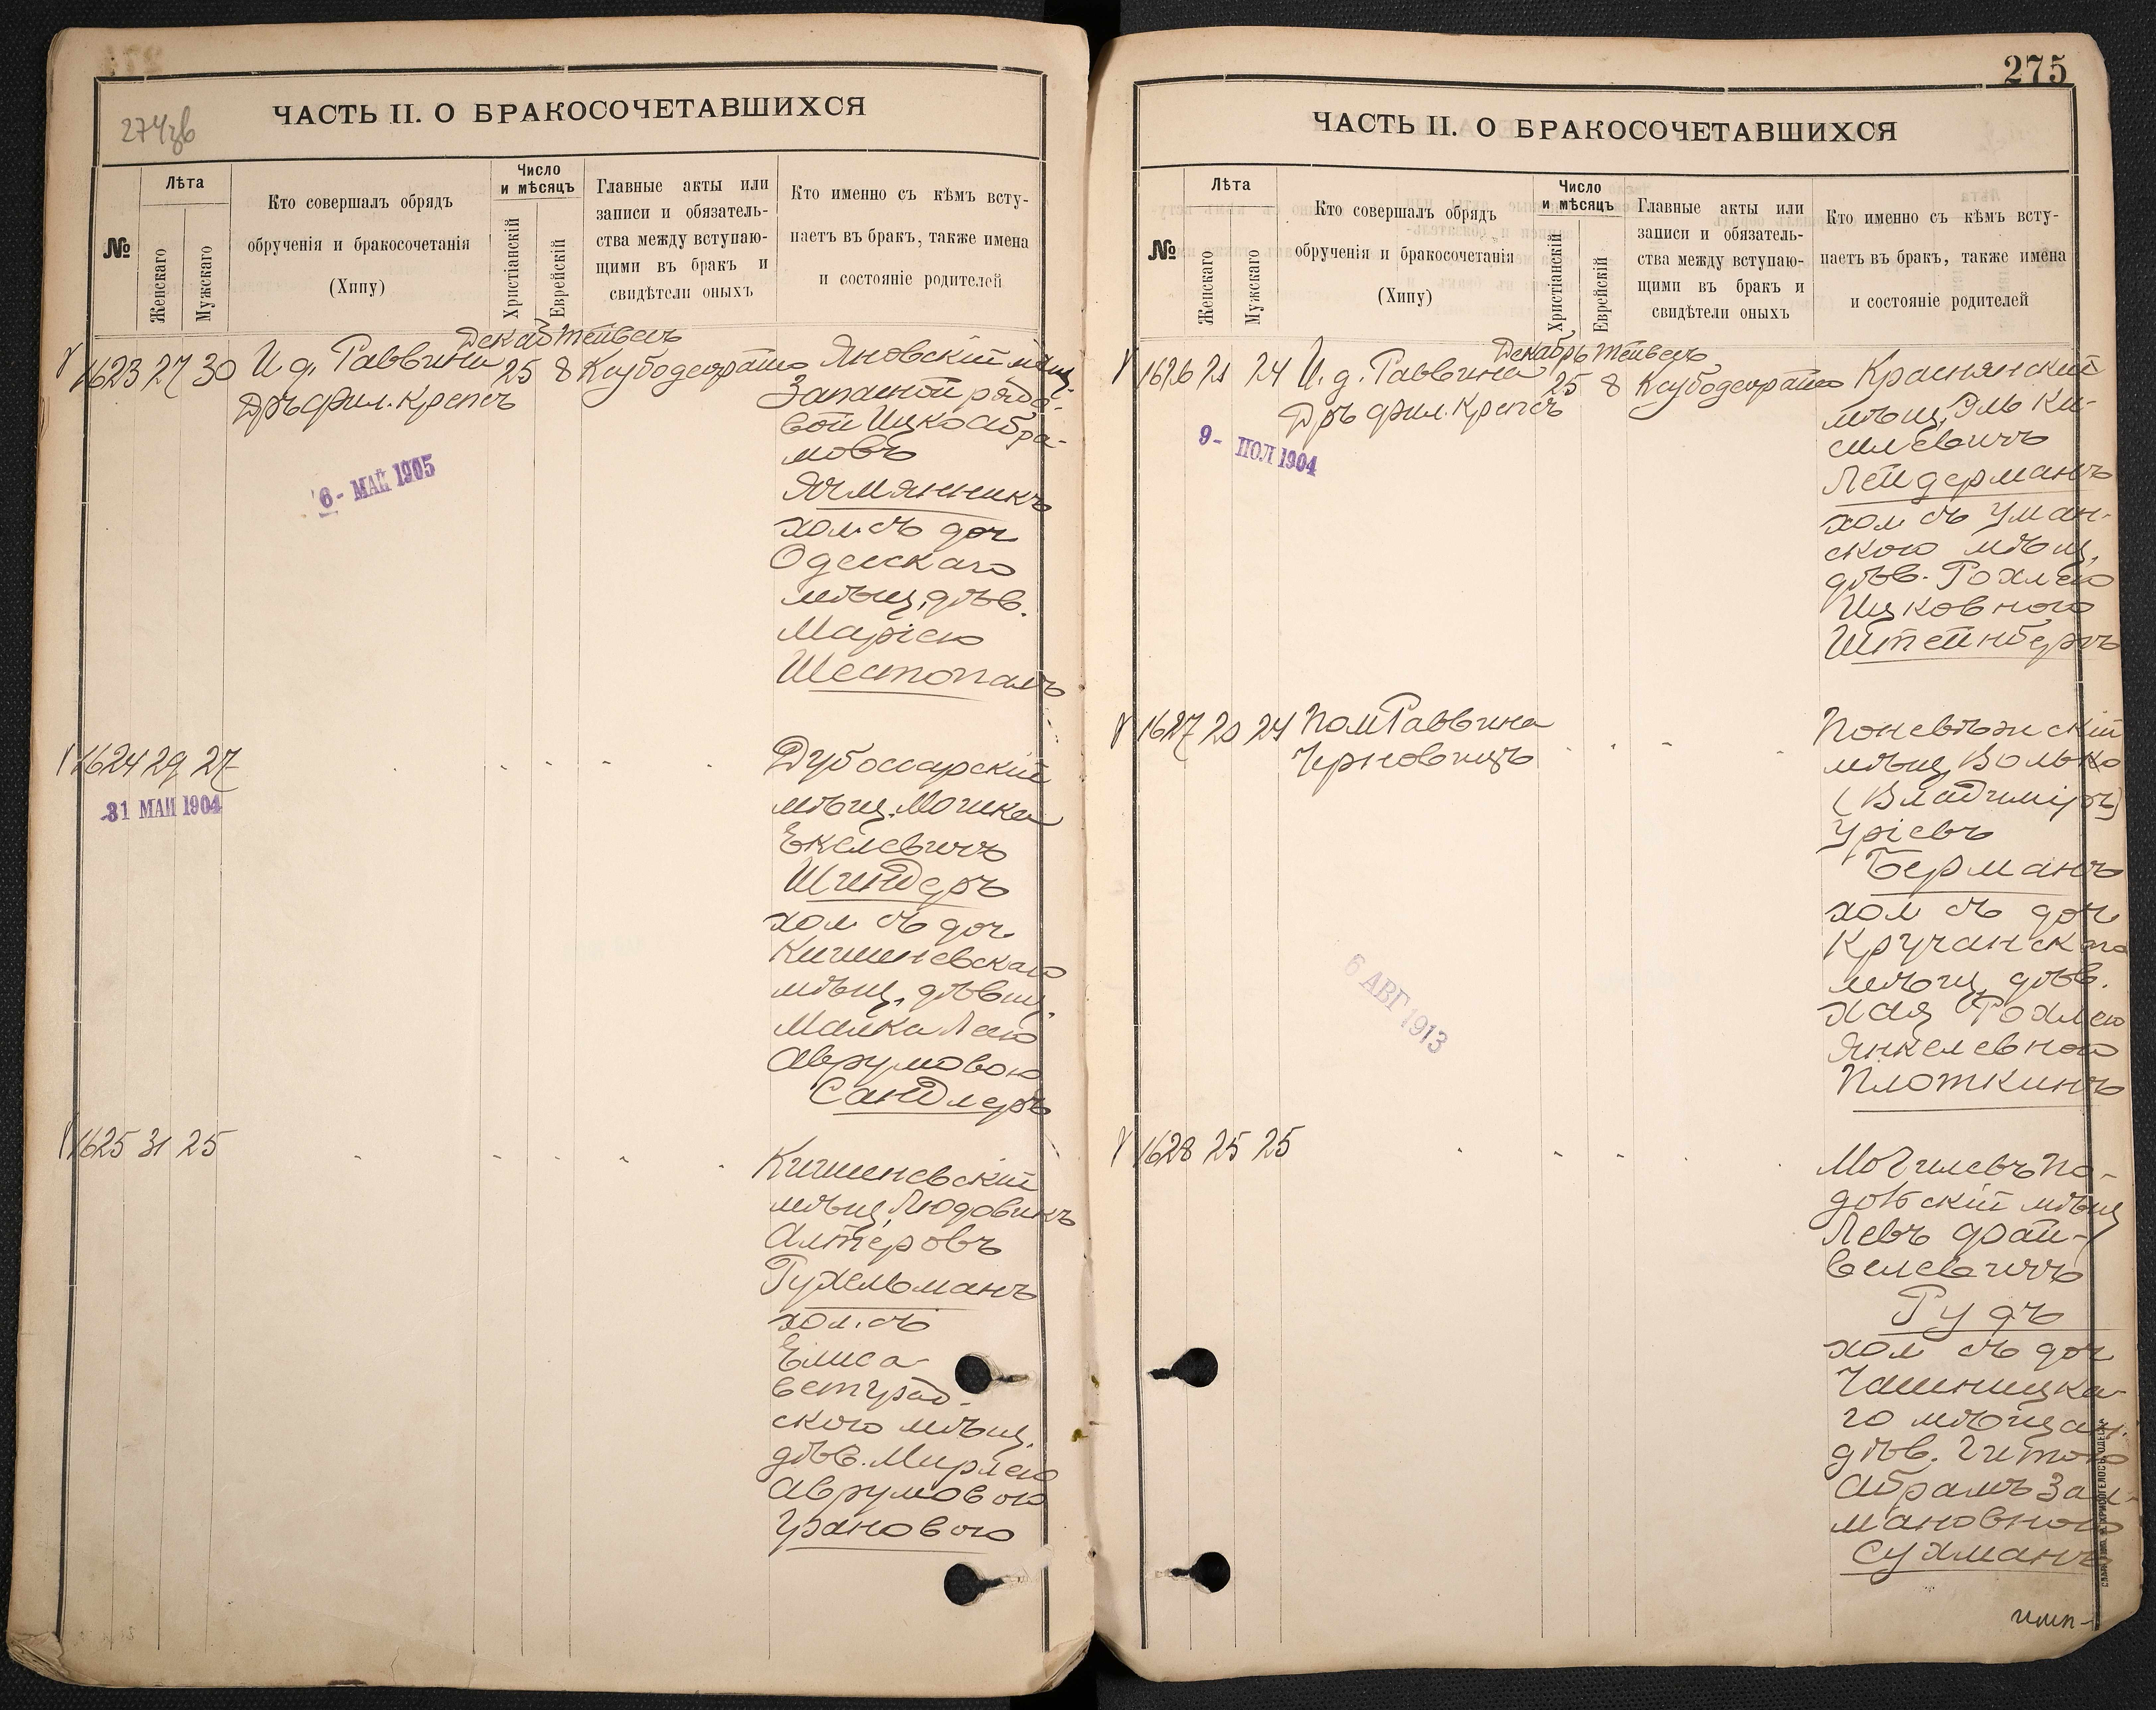 274зв
ЧАСТЬ II. О БРАКОСОЧЕТАВШИХСЯ
№
Лѣта
Женскаго
Мужскаго
Кто совершалъ обрядъ
обрученія и бракосочетанія
(Хипу)
Число
и мѣсяцъ
Христіанскій
Еврейскій
Главные акты или
записи и обязатель-
ства между вступаю-
щими въ бракъ и
свидѣтели оныхъ
Кто именно съ кѣмъ всту-
паетъ въ бракъ, также имена
и состояніе родителей
Декаб Тейвесъ
1623 27 30 И. д. Раввина 25 8
Дръ фил. Крепсъ
Яновскій мѣщ.
Запасной рядо-
вой Ицко Абра-
мовъ
Ячмянникъ
хол. съ доч
Одесскаго
мѣщ. дѣв.
Маріею
Шестопалъ
6 - МАЙ 1905
1624 29 27
31 МАЙ 1904
Дубоссарскій
мѣщ. Мошка
Екелевичъ
Шнидеръ
хол съ доч
Кишиневскаго
мѣщ. дѣвиц.
Малка Леею
Аврумовою
Сандлеръ
1625 31 25
Кишиневскій
мѣщ. Людовикъ
Алтеровъ
Гухельманъ
хол. съ
Елиса-
ветград-
скою мѣщ.
дѣв. Мирлею
Аврумовою
Урановою
275
ЧАСТЬ II. О БРАКОСОЧЕТАВШИХСЯ
№
Лѣта
Женскаго
Мужскаго
Кто совершалъ обрядъ
обрученія и бракосочетанія
(Хипу)
Число
и мѣсяцъ
Христіанскій
Еврейскій
Главные акты или
записи и обязатель-
ства между вступаю-
щими въ бракъ и
свидѣтели оныхъ
Кто именно съ кѣмъ всту-
паетъ въ бракъ, также имена
и состояніе родителей
Декабрь Тейвесъ
1626 21 24 И. д. Раввина 25 8
Дръ фил. Крепсъ
9 - ІЮЛ 1904
Краснянскій
мѣщ. Эль Ки-
силевичъ
Лейдерманъ
хол съ Уман-
скою мѣщ.
дѣв. Рохлею
Ицковною
Штейнбергъ
1627 20 24 Пом Раввина
Черновицъ
6 АВГ 1913
Поневѣжскій
мѣщ. Волько
(Владиміръ)
Уріевъ
Берманъ
хол съ доч
Кручанскаго
мѣщ. дѣв.
Хая Рохлею
Янкелевною
Плоткинъ
1628 25 25
Могилевъ По-
дольскій мѣщ
Левъ Фай-
велевичъ
Рудъ
хол съ доч
Чашницка-
го мѣщан.
дѣв. Гитою
Абрамъ Зал-
мановною
Сухманъ